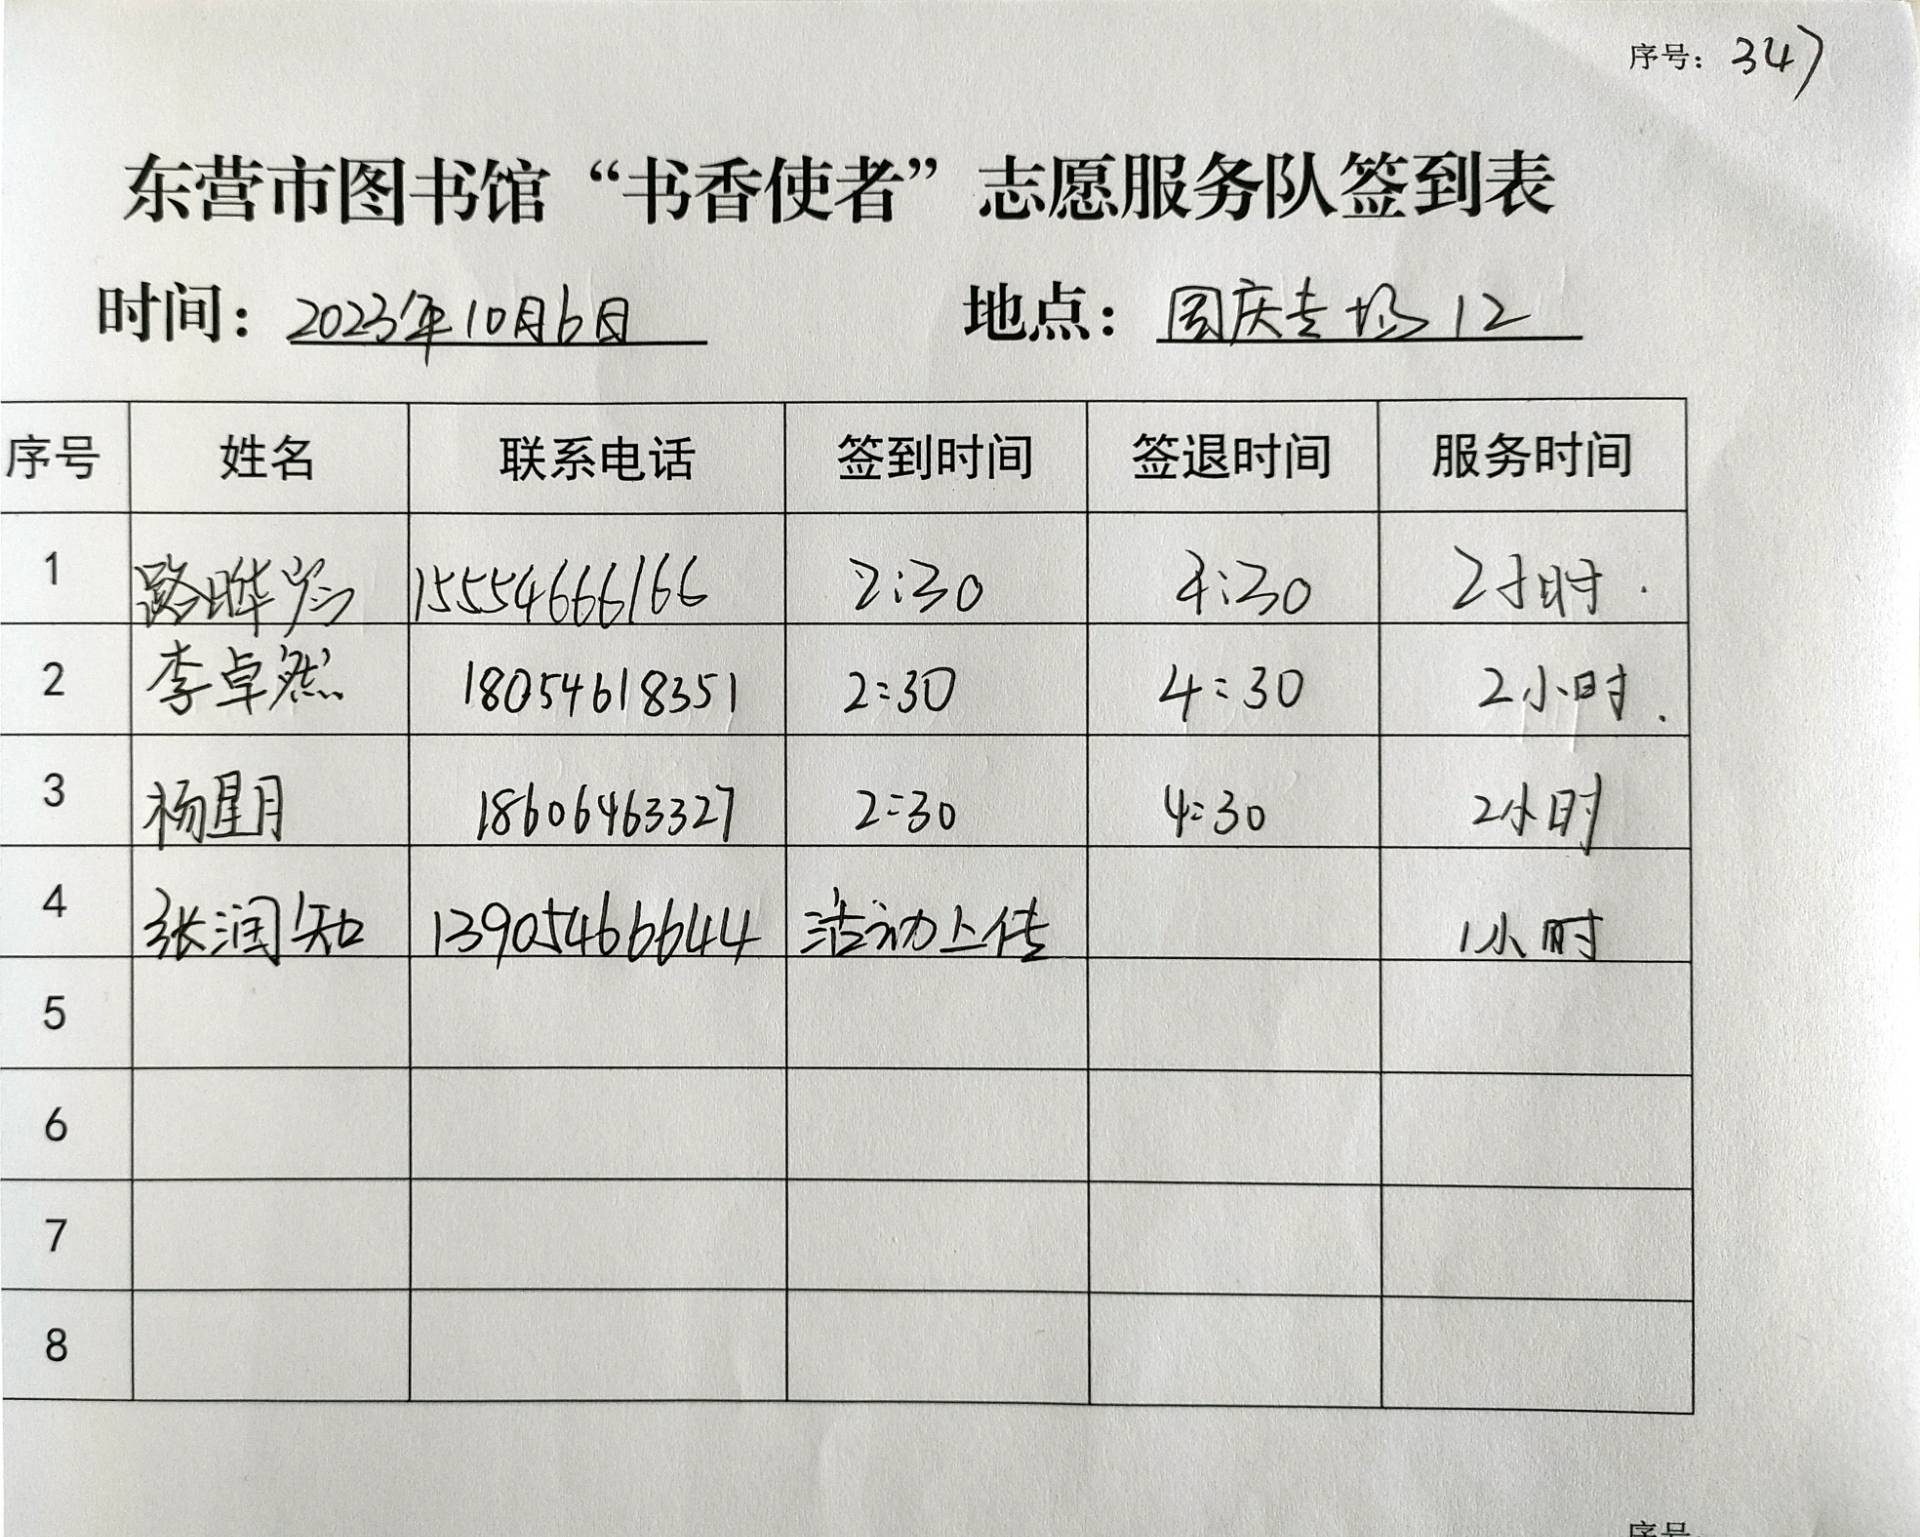 序号：347
东营市图书馆“书香使者”志愿服务队签到表
时间：2023年10月6日 地点：国庆专场12
序号 姓名 联系电话 签到时间 签退时间 服务时间
1 路晔 15554666166 2:30 4:30 2小时.
2 李卓然 18054618351 2:30 4:30 2小时.
3 杨星月 18606463327 2:30 4:30 2小时
4 张润知 13905466644 活动上传 1小时
5
6
7
8
序号